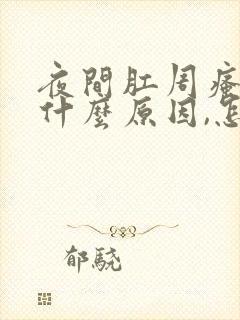 夜間肛周瘙
什麼原因,怎
郁驍